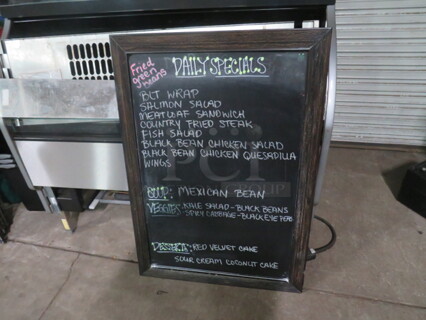 Fried
green
beans
DAILY SPECIALS
BLT WRAP
SALMON SALAD
MEATLOAF SANDWICH
COUNTRY FRIED STEAK
FISH SALAD
BLACK BEAN CHICKEN SALAD
BLACK BEAN CHICKEN QUESADILLA
WINGS
SOUP: MEXICAN BEAN
VEGGIES: KALE SALAD - BLACK BEANS
SPICY CABBAGE - BLACKEYE PEAS
DESSERTS: RED VELVET CAKE
SOUR CREAM COCONUT CAKE
PCI